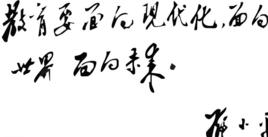 教育要面向现代化，面向
世界 面向未来。
邓小